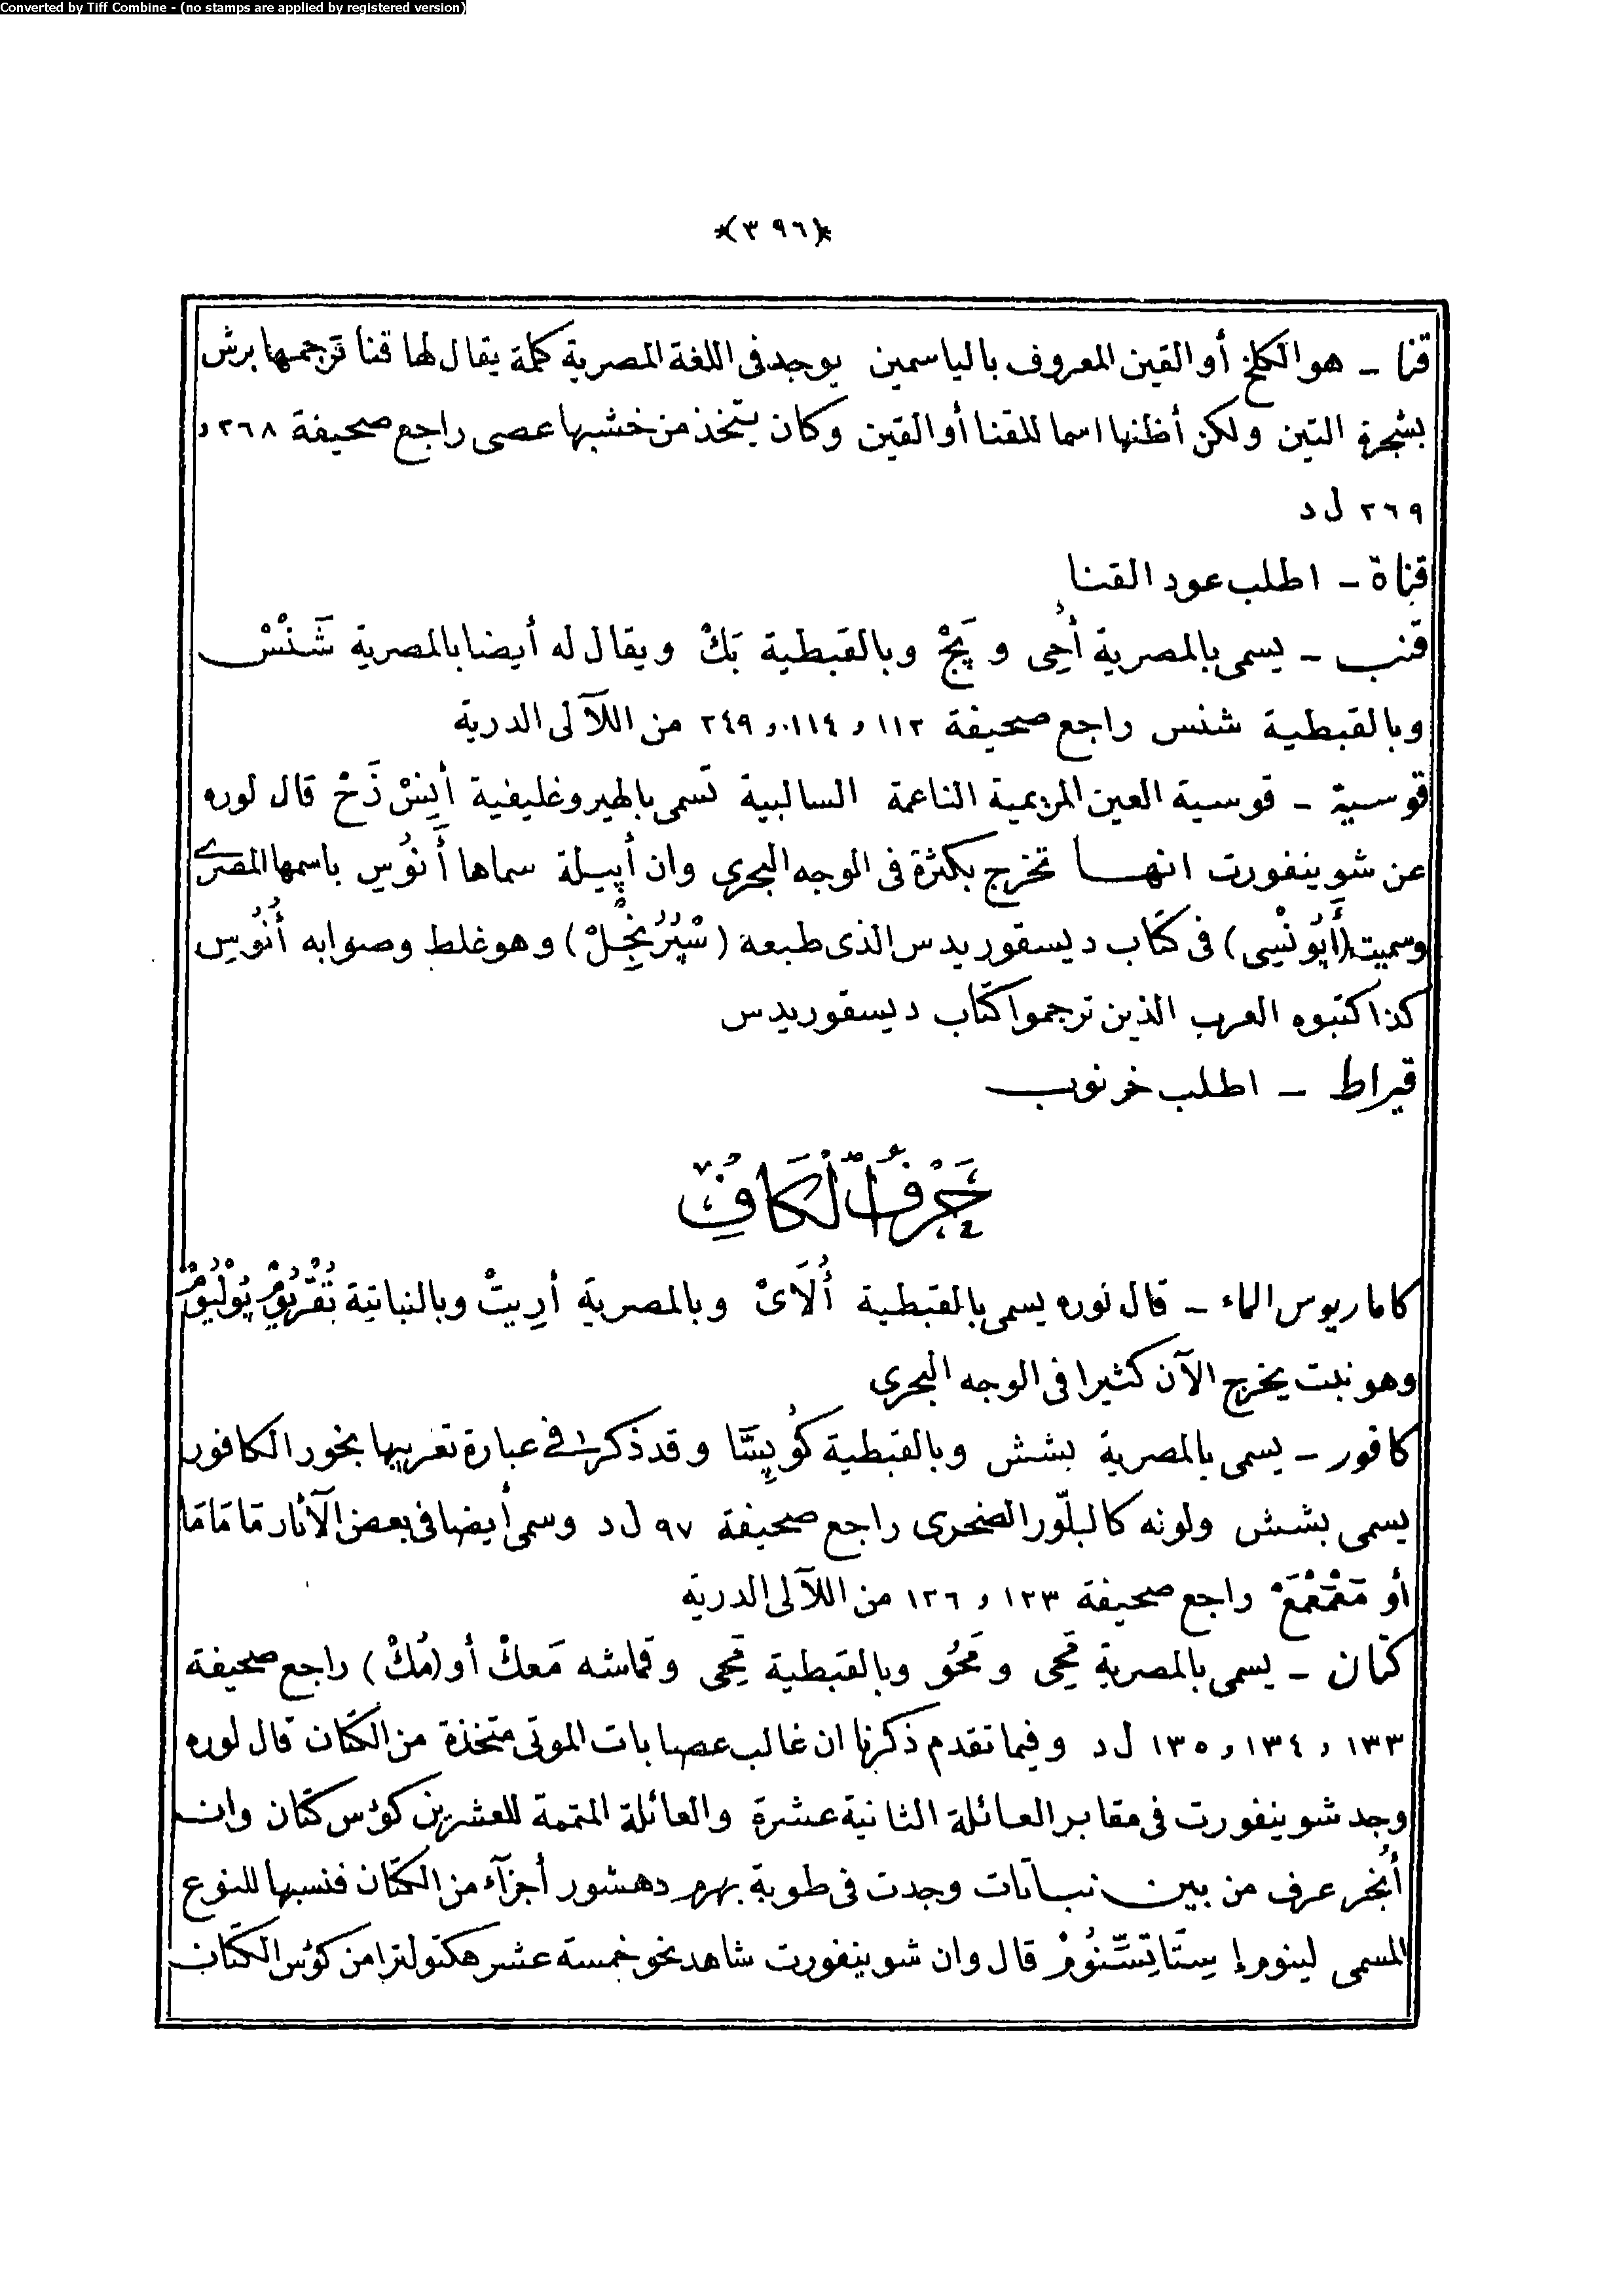 Converted by Tiff Combine - (no stamps are applied by registered version)
*(٣٩٦)*
قنا ـ هو الكلخ أو القين المعروف بالياسمين يوجد فى اللغة المصرية كلمة يقال لها قنا ترجمها برش
بشجرة التين ولكن أظنها اسما للقنا أو القين وكان يتخذ من خشبها عصى راجع صحيفة ٢٦٨ و
٢٦٩ ل د
قناة ـ اطلب عود القنا
قنب ـ يسمى بالمصرية أُحِى و پَجْ وبالقبطية بَكْ ويقال له أيضا بالمصرية شَنْسْ
وبالقبطية شنس راجع صحيفة ١١٢ و ١١٤ و ٢٤٩ من اللآلى الدرية
قوسية ـ قوسية العين المريمية الناعمة السالبية تسمى بالهيروغليفية أَبِنْسْ ذَخْ قال لوره
عن شوينفورت انها تخرج بكثرة فى الوجه البحرى وان أپيلة سماها أَنُوسِ باسمها المصرى
وسميت (أَپُونْسِى) فى كتاب ديسقوريدس الذى طبعه (سْپُرُنْجِلْ) وهو غلط وصوابه أَنُوسِ
كذا كتبوه العرب الذين ترجموا كتاب ديسقوريدس
قيراط ـ اطلب خرنوب
حَرْفُ الْكَافِ
كاماريوس الماء ـ قال لوره يسمى بالقبطية أُلَاىْ وبالمصرية أرِيتْ وبالنباتية تُقْرِيُومْ پُولْيُومْ
وهو نبت يخرج الآن كثيرا فى الوجه البحرى
كافور ـ يسمى بالمصرية بشش وبالقبطية كُوپِسَّا وقد ذكر فى عبارة تعريبها بخور الكافور
يسمى بشش ولونه كالبلّور الصخرى راجع صحيفة ٩٧ ل د وسمى أيضا فى بعض الآثار مَامَامَا
أو مَعْمَعْمَعْ راجع صحيفة ١٢٣ و ١٢٦ من اللآلى الدرية
كتان ـ يسمى بالمصرية مَحِى و مَحُو وبالقبطية مَحِى وقماشه مَعكْ أو (مُكْ) راجع صحيفة
١٣٣ و ١٣٤ و ١٣٥ ل د وفيما تقدم ذكرنا ان غالب عصابات الموتى متخذة من الكتان قال لوره
وجد شوينفورت فى مقابر العائلة الثانية عشرة والعائلة المتممة للعشرين كؤس كتان وان
أُنْجَر عرف من بين نباتات وجدت فى طوبة بهرم دهشور أجزآء من الكتان فنسبها للنوع
المسمى لينوم إسِتَاتِسِّنُومْ قال وان شوينفورت شاهد نحو خمسة عشر هكتولترا من كؤس الكتان